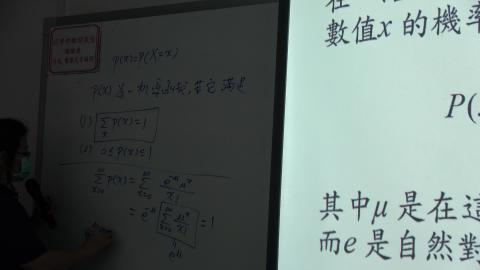 p(x)=P(X=x)
p(x) 為一機率函数,若它滿足
(1) Σ_x p(x)=1
(2) 0≤p(x)≤1
Σ_{x=0}^∞ p(x) = Σ_{x=0}^∞ e^{-μ} μ^x / x!
= e^{-μ} Σ_{x=0}^∞ μ^x / x! = 1
e^μ
數值x 的機率
P(
其中μ 是在這
而e 是自然對